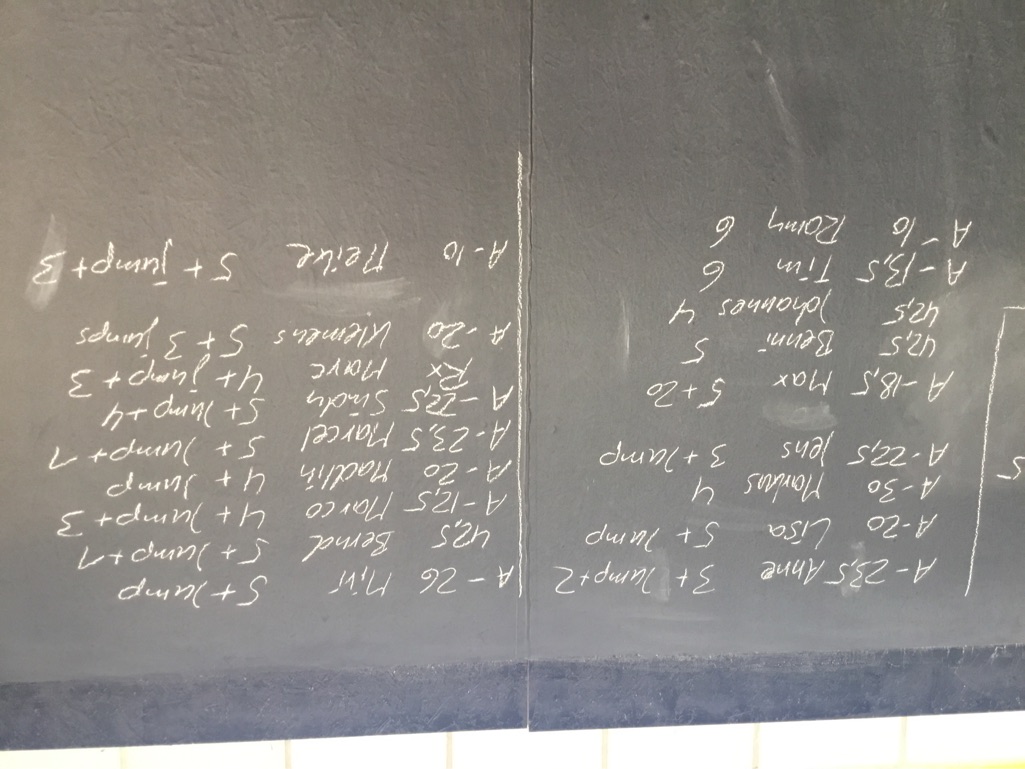 A-23,5 Anne 3+Jump+2
A-20 Lisa 5+Jump
A-30 Markus 4
A-22,5 Jens 3+Jump
A-18,5 Max 5+20
42,5 Benni 5
42,5 Johannes 4
A-13,5 Tim 6
A-10 Romy 6
A-26 Miri 5+Jump
42,5 Bernd 5+Jump+1
A-12,5 Marco 4+Jump+3
A-20 Madlin 4+Jump
A-23,5 Marcel 5+Jump+1
A-22,5 Sindy 5+Jump+4
Rx Marc 4+jump+3
A-20 Klemens 5+3 jumps
A-10 Meike 5+jump+3